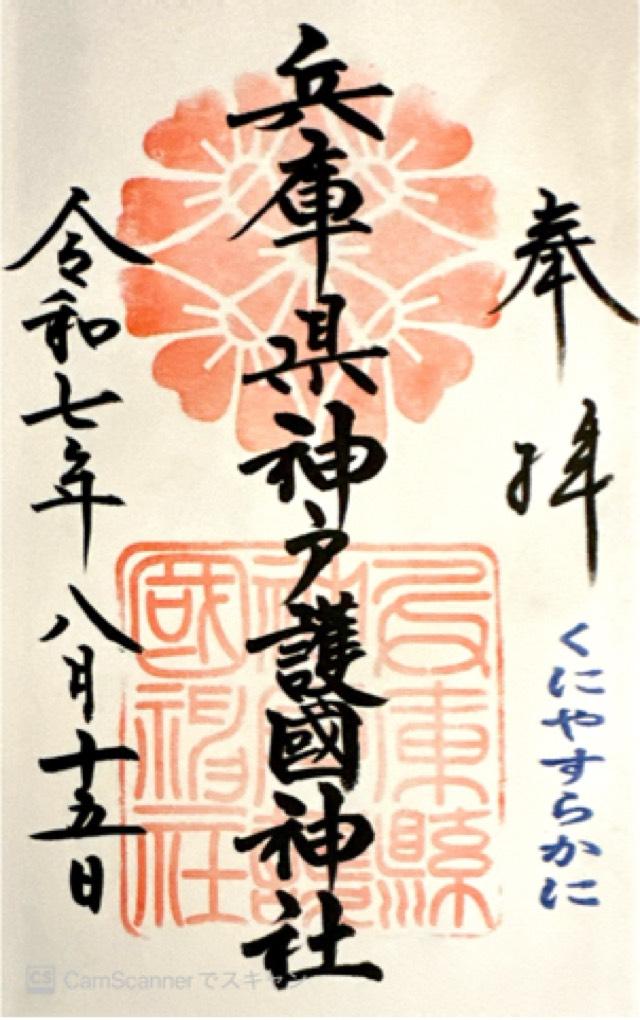 奉拝
くにやすらかに
兵庫県神戸護國神社
兵庫縣
神戸護
國神社
令和七年八月十五日
CS CamScannerでスキャン